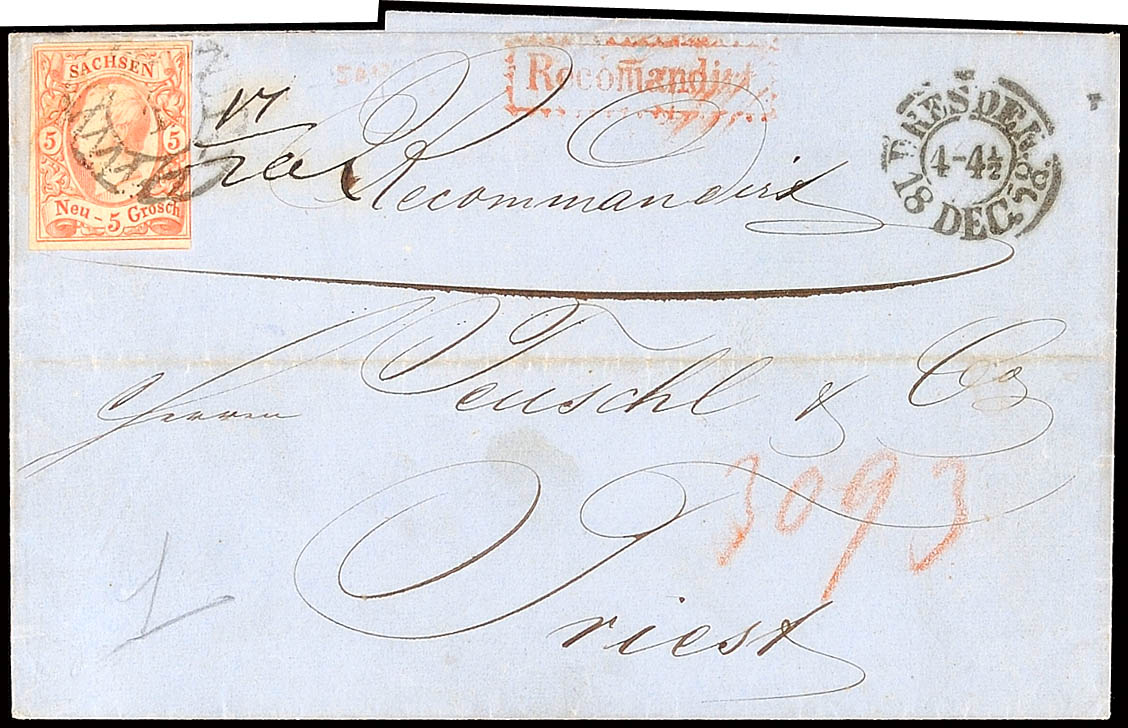 SACHSEN
5 5
Neu - 5 Grosch
Recomandirt
DRESDEN
4-4½
18 DEC. 58.
Recommandirt
Herren Teuschl & Co
Triest
3093
1